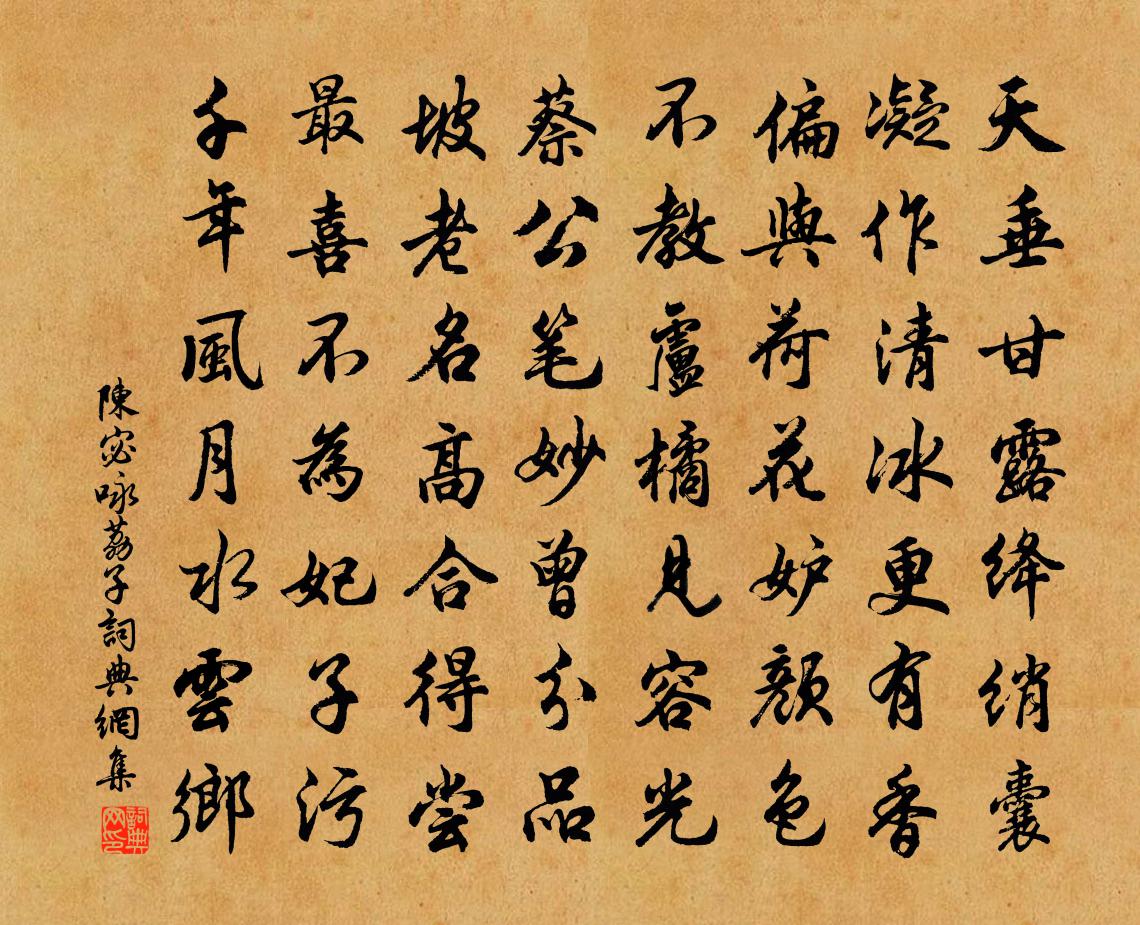 天垂甘露绛绡囊
凝作清冰更有香
偏與荷花妒顏色
不教盧橘見容光
蔡公笔妙曾分品
坡老名高合得尝
最喜不為妃子污
千年風月水雲鄉
陳宓咏荔子詞典網集
詞典网印